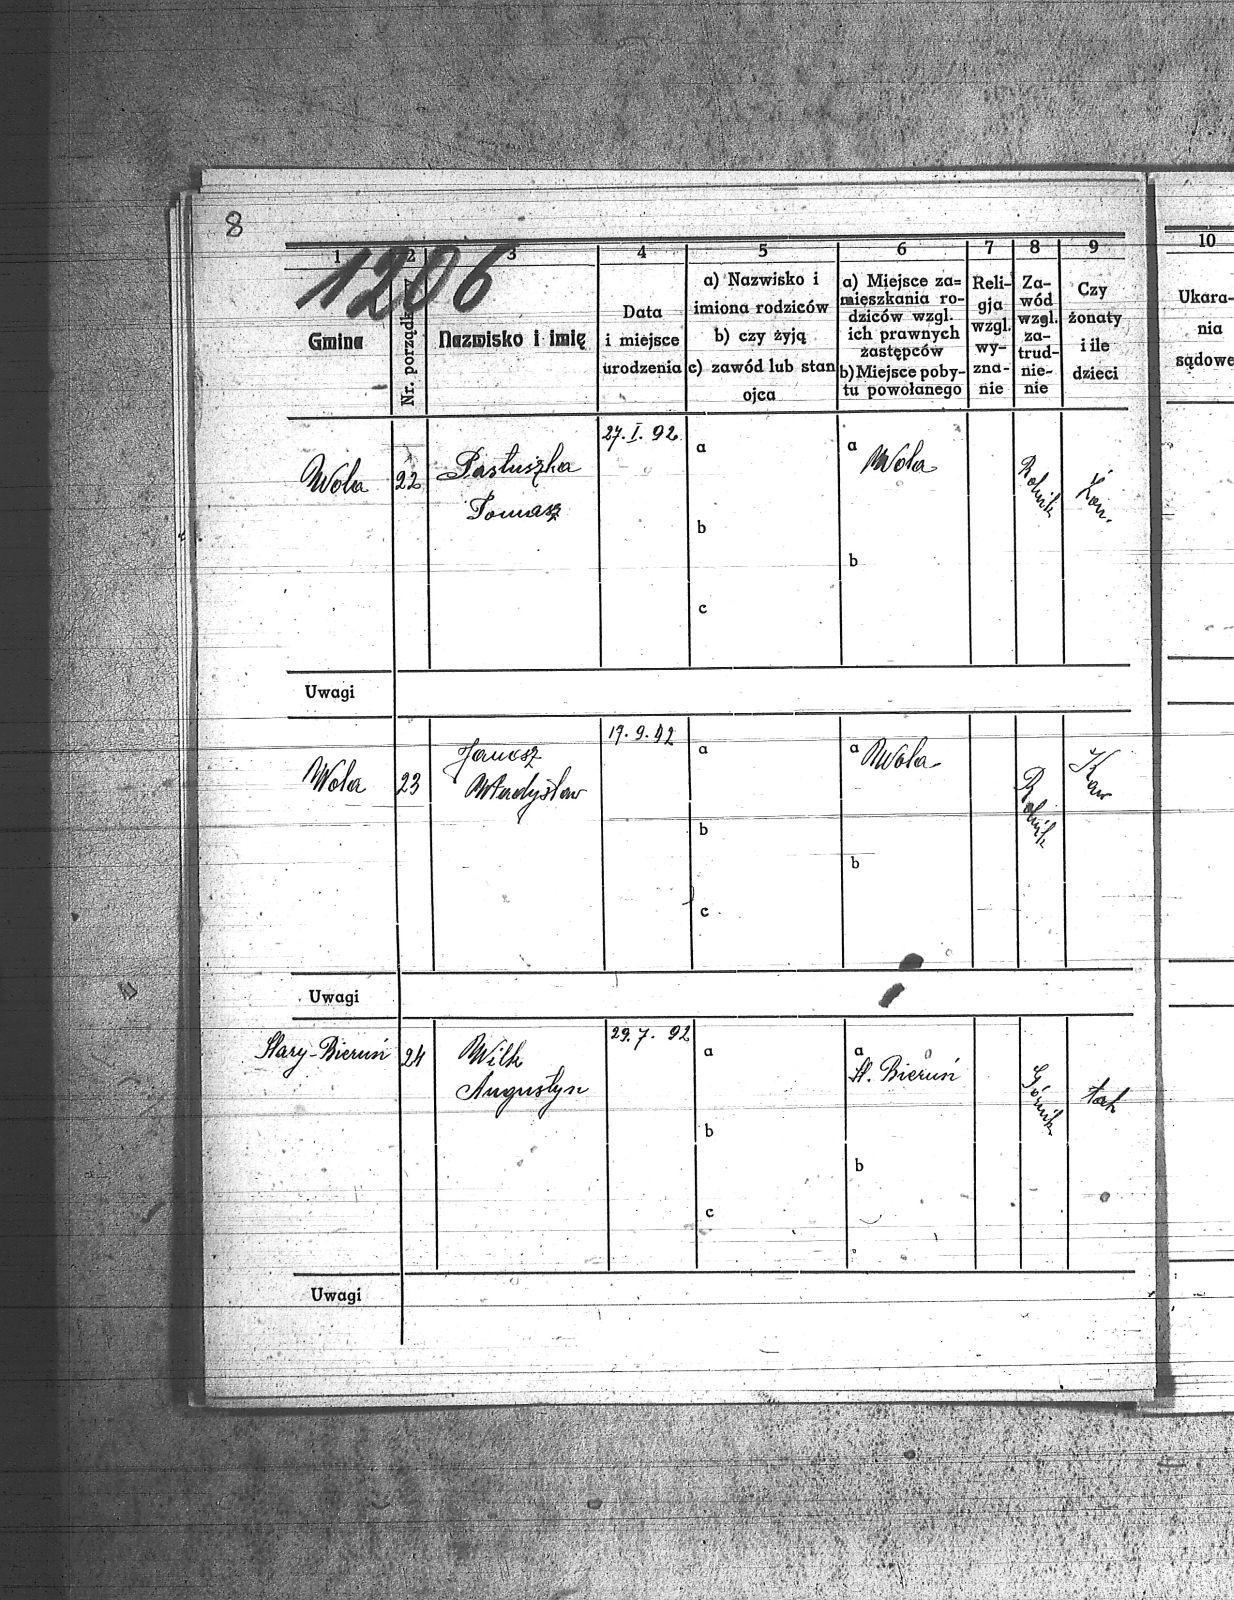 8
1206
1 2 3 4 5 6 7 8 9 10
Gmina
Nr. porządk.
Nazwisko i imię
Data
i miejsce
urodzenia
a) Nazwisko i
imiona rodziców
b) czy żyją
c) zawód lub stan
ojca
a) Miejsce za=
mieszkania ro-
dziców wzgl.
ich prawnych
zastępców
b) Miejsce poby-
tu powołanego
Reli-
gja
wzgl.
wy-
zna-
nie
Za-
wód
wzgl.
za-
trud-
nie-
nie
Czy
żonaty
i ile
dzieci
Ukara-
nia
sądowe
Wola 22 Pastuszka
Tomasz
27. I. 92
a
b
c
a Wola
b
Rolnik
Uwagi
Wola 23
Władysław
a
b
c
a Wola
b
Rolnik
Kaw
Uwagi
Stary-Bieruń 24 Wilk
Augustyn
29. 7. 92
a
b
c
a
St. Bieruń
b
Górnik
tak
Uwagi